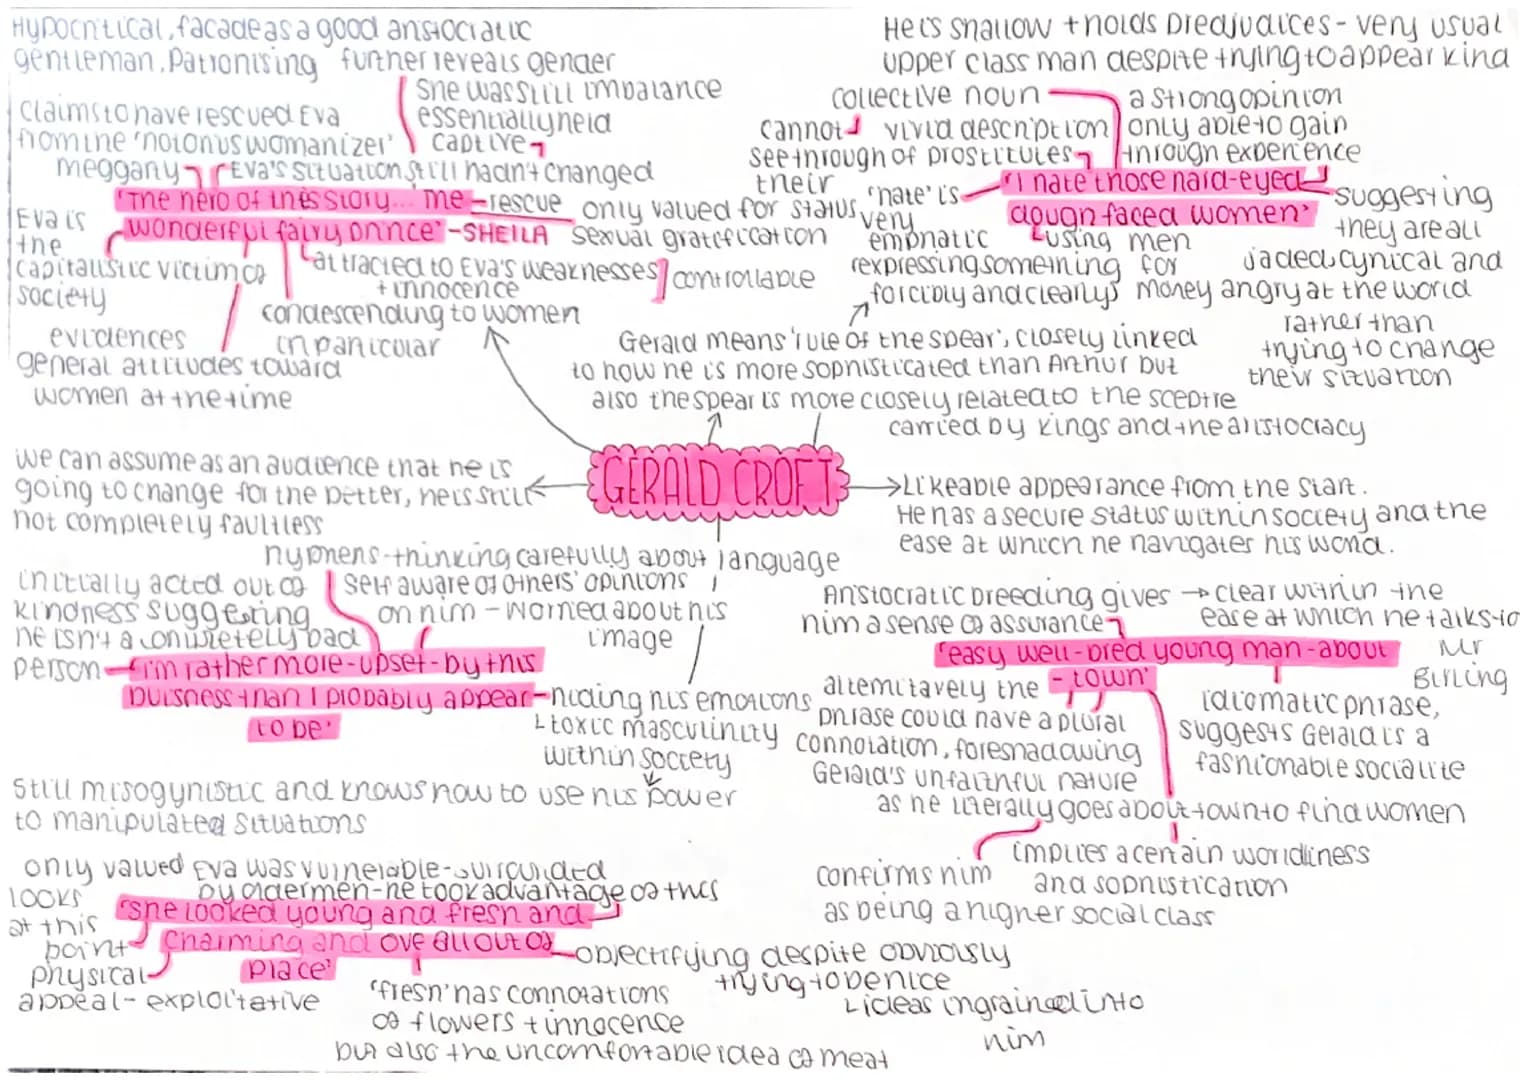 Hypocritical, facade as a good aristocratic
gentleman. Patronising
further reveals gender
imbalance
She was still
essentially held
captive
Claims to have rescued Eva
from the 'notorius womanizer'
meggarty
Eva's situation still hadn't changed
'The hero of this story... the
wonderful fairy prince' - SHEILA
rescue
only valued for status,
sexual gratification
Eva is
the
capitalistic victim of
society
attracted to Eva's weaknesses
+ innocence
controllable
condescending to women
in particular
evidences
general attitudes toward
women at the time
He is shallow + holds predjudices - very usual
upper class man despite trying to appear kind
collective noun
a strong opinion
only able to gain
through experience
cannot
see through
their
vivid description
of prostitutes
'I hate those hard-eyed
dough faced women'
'hate' is
very
emphatic
expressing something
forcibly and clearly
using men
for
money
suggesting
they are all
jaded, cynical and
angry at the world
rather than
trying to change
their situation
Gerald means 'rule of the spear', closely linked
to how he is more sophisticated than Arthur but
also the spear is more closely related to the sceptre
carried by kings and the aristocracy
GERALD CROFT
We can assume as an audience that he is
going to change for the better, he is still
not completely faultless
Likeable appearance from the start.
He has a secure status within society and the
ease at which he navigates his world.
hyphens - thinking carefully about language
self aware of others' opinions
on him - worried about his
image
initially acted out of
kindness suggesting
he isn't a completely bad
person
'i'm rather more-upset-by this
buisness than I probably appear
to be'
hiding his emotions
toxic masculinity
within society
Still misogynistic and knows how to use his power
to manipulated situations
Aristocratic breeding gives
him a sense of assurance
clear within the
ease at which he talks to
Mr
Birling
'easy well-bred young man-about
-town'
alternitavely the
phrase could have a plural
connotation, foreshadowing
Gerald's unfaithful nature
as he literally goes about town to find women
idiomatic phrase,
suggests Gerald is a
fashionable socialite
confirms him
as being a higher social class
implies a certain worldliness
and sophistication
only valued
looks
at this
point
physical
appeal - exploitative
Eva was vulnerable - surrounded
by older men - he took advantage of this
'she looked young and fresh and
charming and ove all out of
place'
objectifying despite obviously
trying to be nice
ideas ingrained into
him
'fresh' has connotations
of flowers + innocence
but also the uncomfortable idea of meat